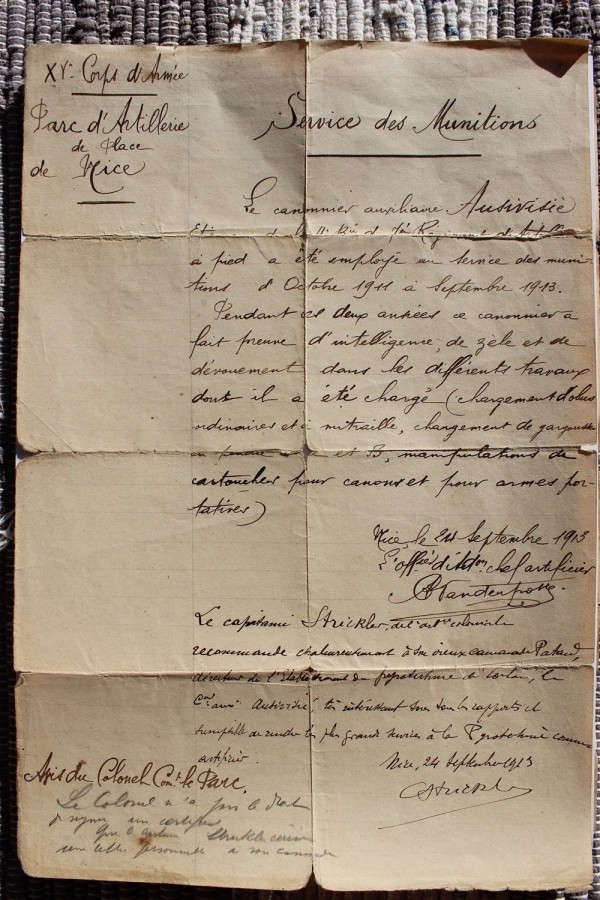 XVe Corps d'Armée
Parc d'Artillerie
de Place
de Nice
Service des Munitions
Le canonnier auxiliaire Ausivisié
à pied a été employé au service des muni-
tions d'Octobre 1911 à Septembre 1913.
Pendant ces deux années ce canonnier a
fait preuve d'intelligence, de zèle et de
dévouement dans les différents travaux
dont il a été chargé (chargement d'obus
ordinaires et à mitraille, chargement de gargousses
en poudre et B, manipulations de
cartouches pour canons et pour armes por-
tatives)
Nice, le 24 Septembre 1913
L'offier d'Adon chef artificier
Le capitaine Strickler, de l'artie coloniale
recommande chaleureusement à son vieux camarade
directeur de l' de pyrotechnie de Toulon, le
Cer auxre Ausivisié, très intéressant sous tous les rapports et
susceptible de rendre les plus grands services à la Pyrotechnie comme
artificier.
Nice, 24 Septembre 1913
Strickler
Avis du Colonel Comt le Parc.
Le Colonel n'a pas le droit
de signer un certificat
Que le capitaine Strickler écrive
une lettre personnelle à son camarade